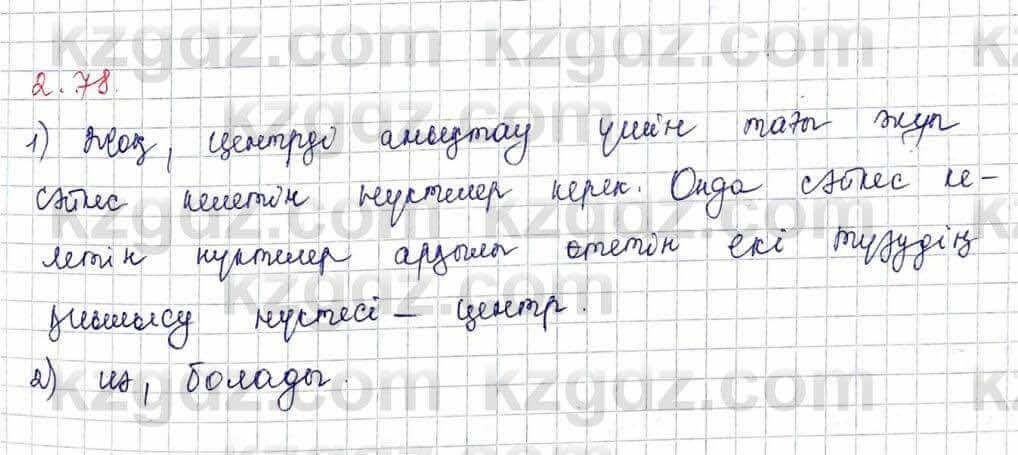 2.78.
1) Жоқ, центрді анықтау үшін тағы жұп
сәйкес келетін нүктелер керек. Онда сәйкес ке-
летін нүктелер арқылы өтетін екі түзудің
қиылысу нүктесі – центр.
2) иә, болады.